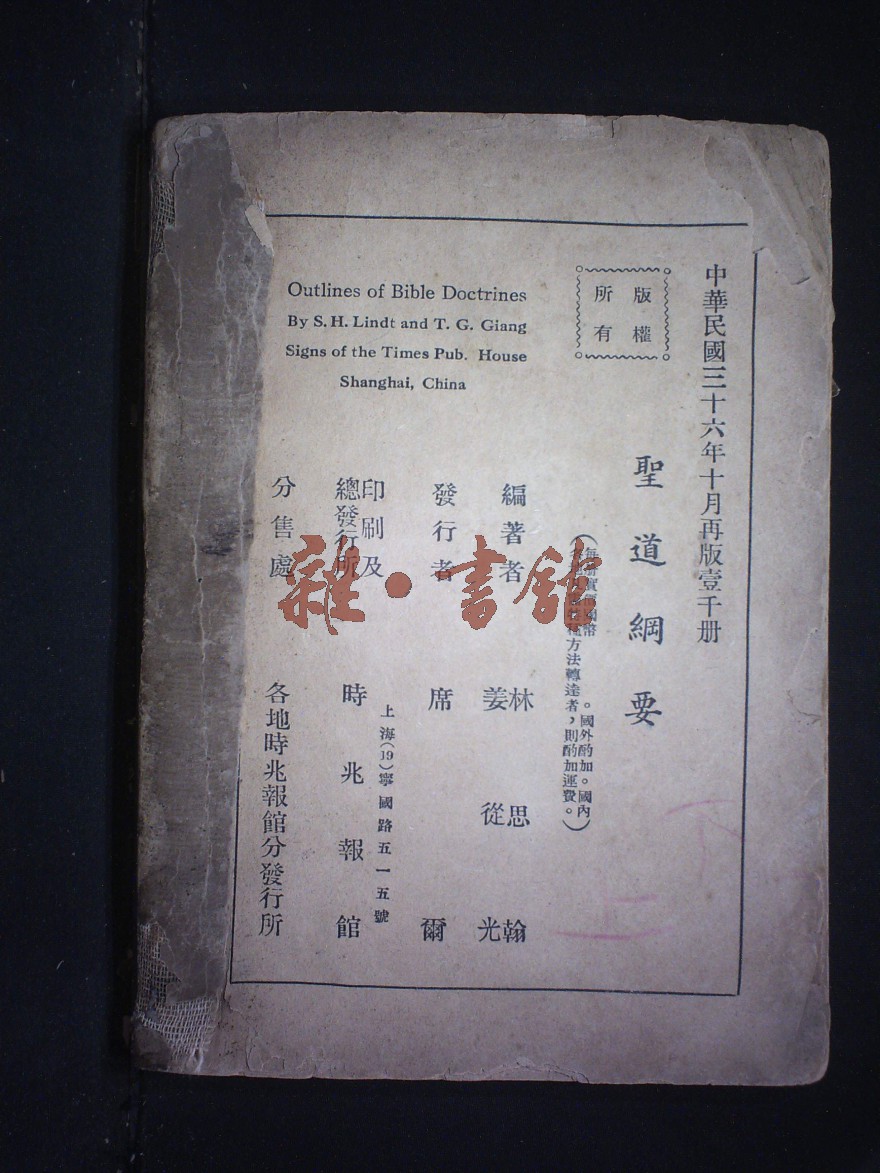 中華民國三十六年十月再版壹千册
版權
所有
聖道綱要
(每冊實價國幣 。國外酌加。國內
方法轉達者,則酌加運費。)
編著者 林思翰
姜從光
發行者 席爾
印刷及
總發行所 時兆報館
上海(19)寧國路五一五號
分售處 各地時兆報館分發行所
Outlines of Bible Doctrines
By S. H. Lindt and T. G. Giang
Signs of the Times Pub. House
Shanghai, China
雜·書館